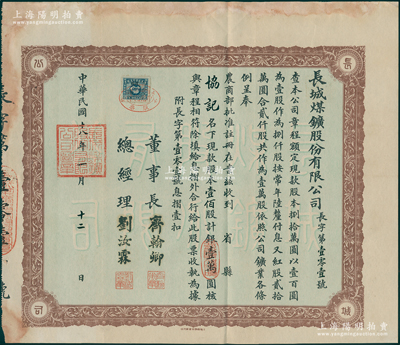 上海陽明拍賣
長城煤鑛股份有限公司
長字第壹零壹號
查本公司章程額定現款股本捌拾萬圓以壹百圓
為壹股作為捌仟股按常年陸釐付息又紅股貳拾
萬圓合貳仟股共作為壹萬股依照公司鑛業各條
例呈奉
農商部批准註冊在案茲收到 省 縣
協記名下現款股本壹佰股計銀壹萬圓核
與章程相符除填給息摺外合行給此股票收執為據
附長字第壹零壹號息摺壹扣
董事長齊翰卿
總經理劉汝霖
中華民國十八年 月十二日
長
城
公
司